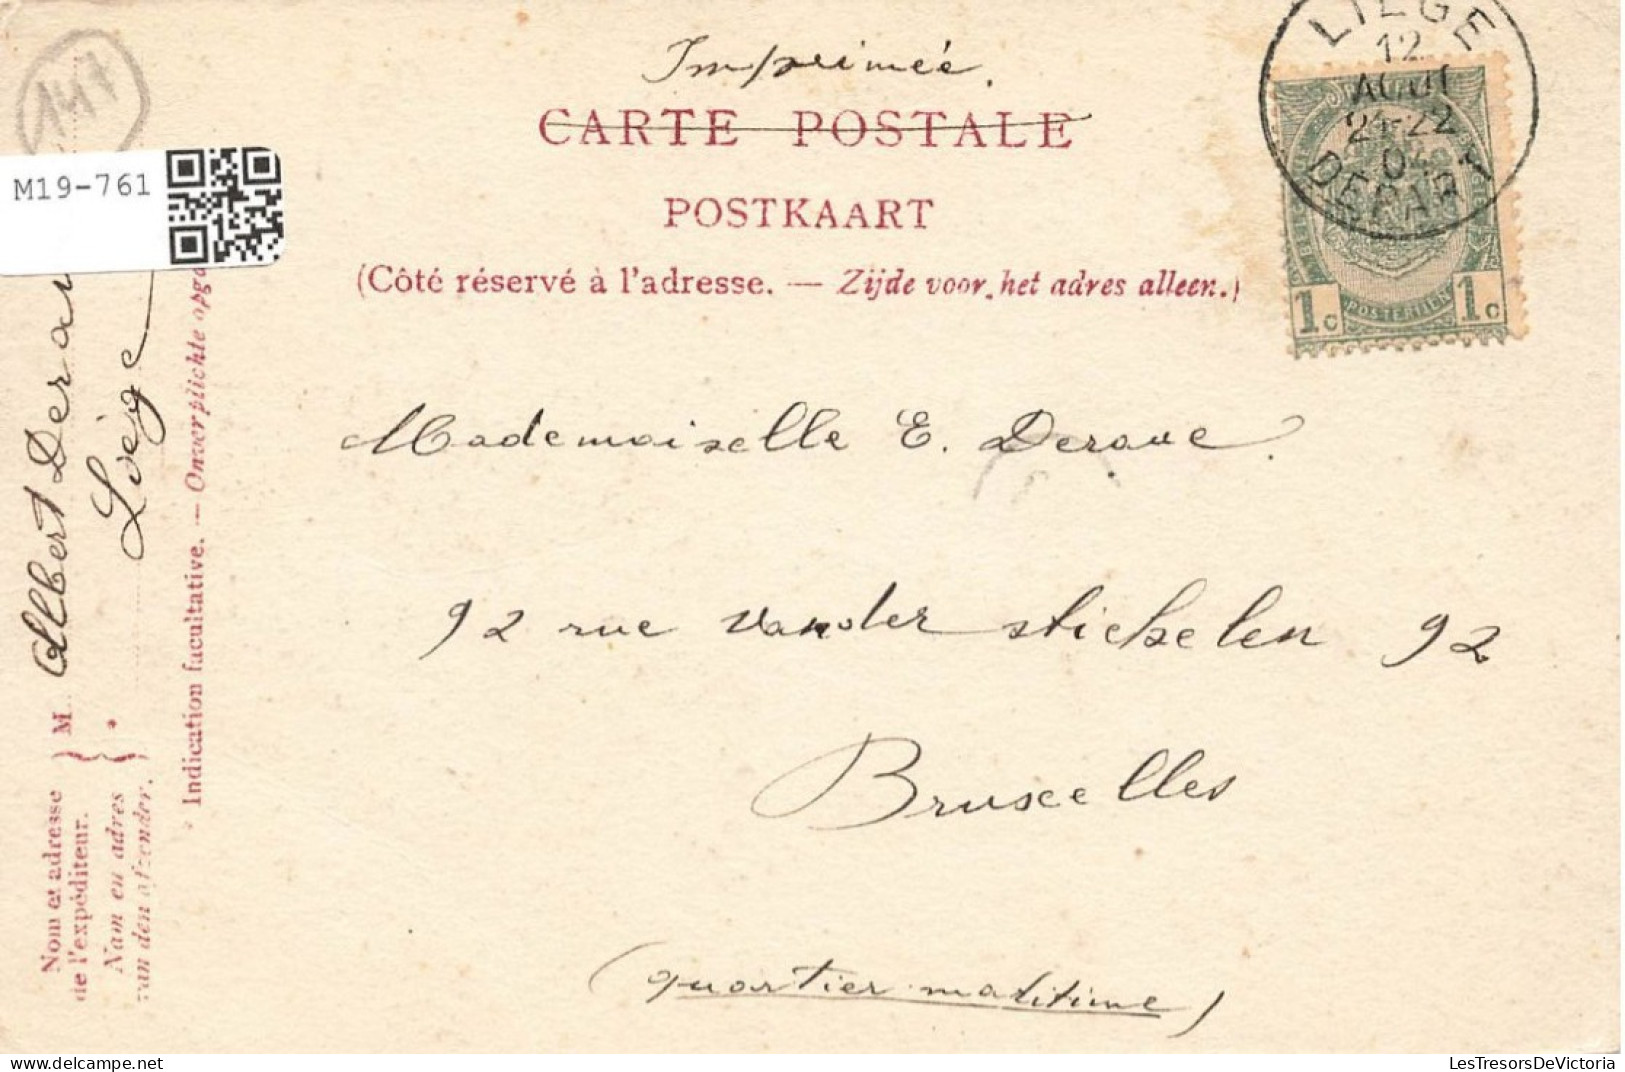 Imprimée.
CARTE POSTALE
POSTKAART
(Côté réservé à l'adresse. — Zijde voor het adres alleen.)
LIÈGE
12
AOUT
21-22
DEPART
1c POSTERIJEN 1c
Mademoiselle E. Deraue.
92 rue Vander stichelen 92
Bruxelles
(quartier maritime)
147
M19-761
Nom et adresse
de l'expéditeur.
Nam en adres
van den afzender.
M. Albert Derau
Liège
Indication facultative. — Onverplichte opga
LesTresorsDeVictoria